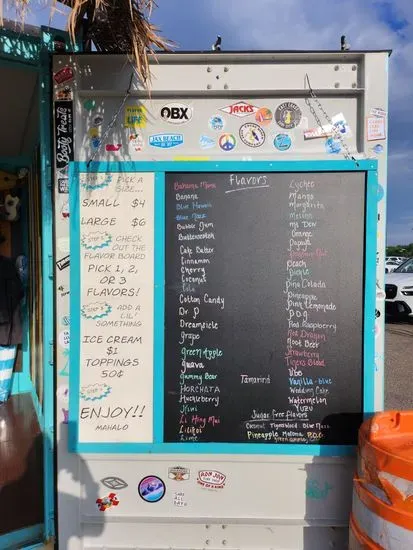 STEP 1
PICK A
SIZE...
SMALL $4
LARGE $6
STEP 2
CHECK
OUT THE
FLAVOR BOARD
PICK 1, 2,
OR 3
FLAVORS!
STEP 3
ADD A
LIL'
SOMETHING
ICE CREAM
$1
TOPPINGS
50¢
ENJOY!!
MAHALO
Flavors
Bahama Mama
Banana
Blue Hawaii
Bubble Gum
Butterscotch
Cake Batter
Cinnamon
Cherry
Coconut
Cola
Cotton Candy
Dr. P
Dreamsicle
Grape
Green Apple
Guava
Gummy Bear
HORCHATA
Huckleberry
Kiwi
Li Hing Mui
Lilikoi
Lime
Tamarind
Lychee
Mango
Margarita
Melon
Mt Dew
Orange
Papaya
Peach
Pickle
Pina Colada
Pineapple
Pink Lemonade
P.O.G
Red Raspberry
Red Dragon
Root Beer
Strawberry
Tigers Blood
Ube
Vanilla-blue
Wedding Cake
Watermelon
YUZU
Sugar Free Flavors
Coconut Tigersblood
Pineapple
OBX
JACK'S
JAX BEACH
RON JON
Booty Treats